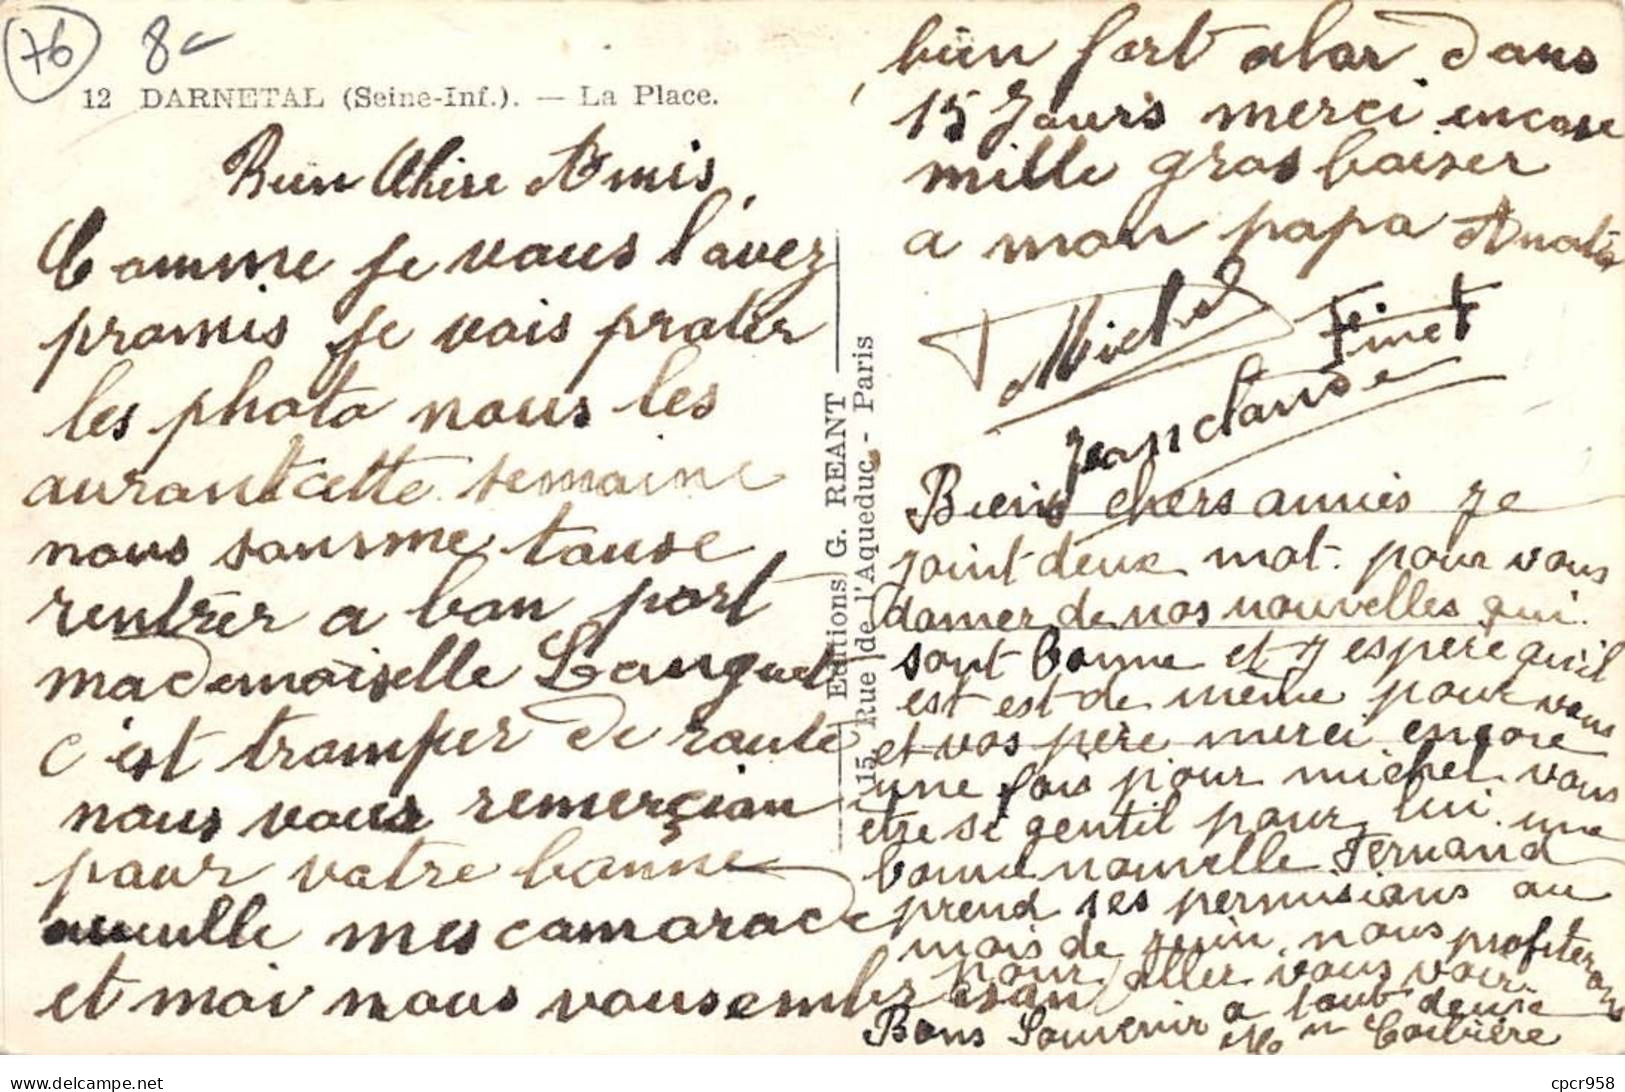 76 8
12 DARNETAL (Seine-Inf.). — La Place.
Bien Chere Amis
Comme je vous l'avez
promis je vais prater
les photo nous les
aurant cette semaine
nous somme touse
rentrer a bon port
mademoiselle Languet
c'est tromper de route
nous vous remerçion
pour votre bonne
aceuille mes camarade
et moi nous vous embrasan
bien fort alor dans
15 Jours merci encore
mille gros baiser
a mon papa Anatole
Michel
Finet
Jean claude
Biens chers amies je
joint deux mot pour vous
donner de nos nouvelles qui
sont bonne et j espère qu'il
est est de même pour vous
et vos père merci encore
une fois pour michel vous
etre si gentil pour lui une
bonne nouvelle Fernand
prend ses permisions au
mois de juin nous profiterons
pour aller vous voir
Bons Souvenir a tout deuxe
Corbière
Editions G. REANT
15, Rue de l'Aqueduc - Paris
cpcr958